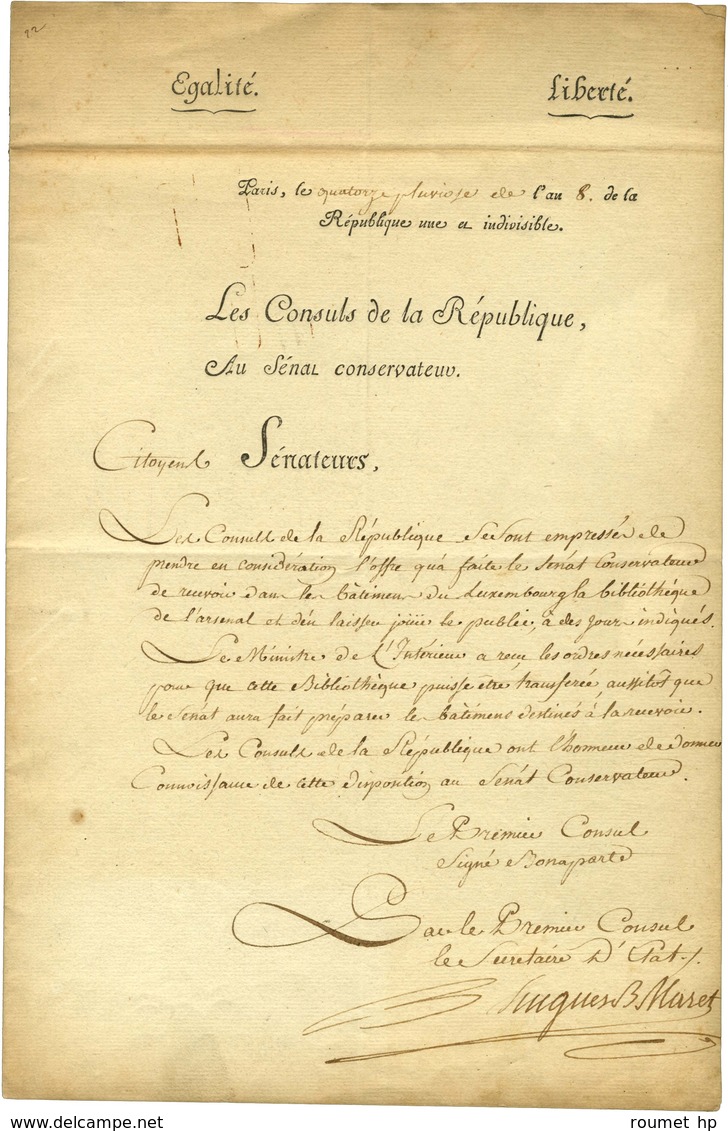 22
Egalité. Liberté.
Paris, le quatorze pluviose de l'an 8. de la
République une et indivisible.
Les Consuls de la République,
Au Sénat conservateur.
Citoyens Sénateurs,
Les Consuls de la République se sont empressés de
prendre en considération l'offre qu'a faite le Sénat Conservateur
de recevoir dans les bâtimens du Luxembourg la bibliothèque
de l'arsenal et d'en laisser jouir le public, à des jours indiqués.
Le Ministre de L'Intérieur a reçu les ordres nécessaires
pour que cette Bibliothèque puisse être transférée, aussitôt que
le Sénat aura fait préparer les bâtimens destinés à la recevoir.
Les Consuls de la République ont l'honneur de donner
Connoissance de cette disposition au Sénat Conservateur.
Le Premier Consul
Signé Bonaparte
Par le Premier Consul
le Secretaire D'Etat
Hugues B Maret
delcampe.net
roumet hp